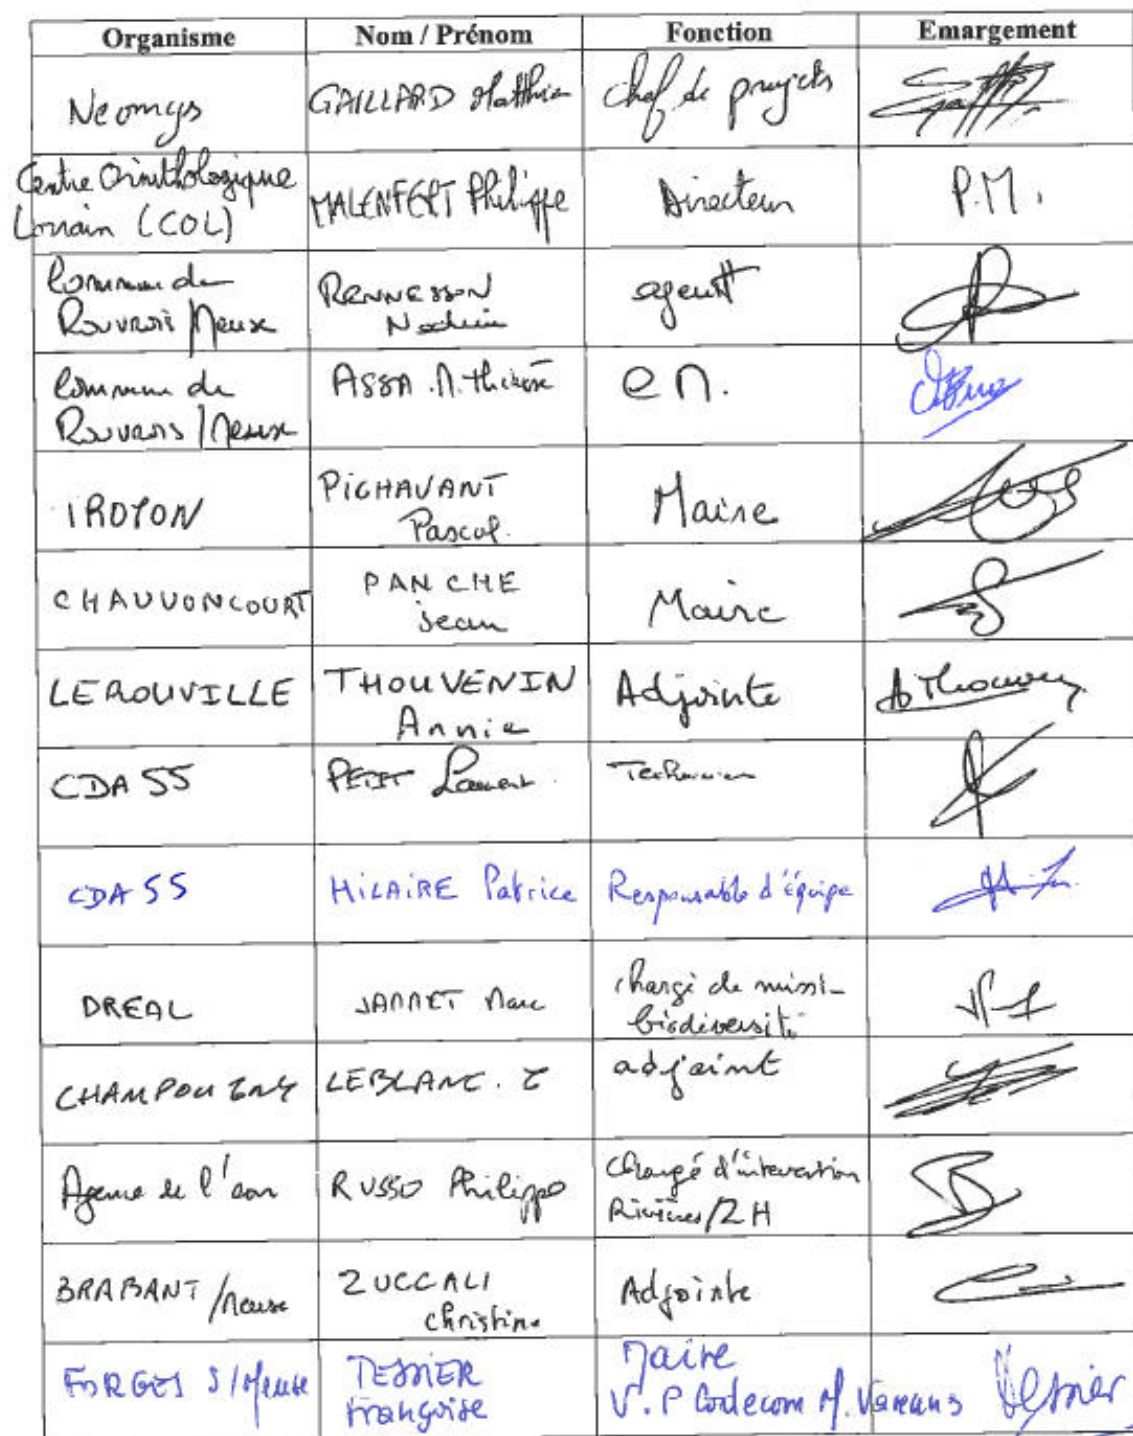 Organisme Nom / Prénom Fonction Emargement
Neomys GAILLARD Matthieu chef de projets
Centre Ornithologique
Lorrain (COL) MALENFERT Philippe Directeur P.M.
Commune de
Rouvrois / Meuse RENNESSON agent
Commune de
Rouvrois / Meuse ASSA . M. Thérèse C M.
TROYON PICHAVANT
Pascal Maire
CHAUVONCOURT PANCHE
jean Maire
LEROUVILLE THOUVENIN
Annie Adjointe AThouvenin
CDA 55 PETIT Laurent Technicien
CDA 55 HILAIRE Patrice Responsable d'équipe
DREAL JANNET Marc chargé de missi-
biodiversité
CHAMPOUGNY LEBLANC. adjoint
Agence de l'eau RUSSO Philippe Chargé d'intervention
Rivières/ZH
BRABANT /Meuse ZUCCALI
christine Adjointe
FORGES S/Meuse TESSIER
Françoise Maire
V.P Codecom M. Varennes Tessier